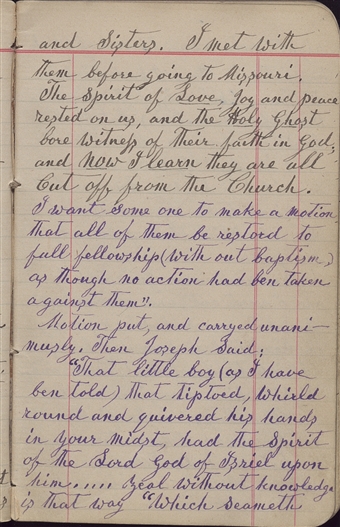 and Sisters. I met with
them before going to Missouri.
The Spirit of Love, Joy and peace
rested on us, and the Holy Ghost
bore witness of their faith in God,
and NOW I learn they are all
Cut off from the Church.
I want some one to make a motion
that all of them be restord to
full fellowship (with out baptism,)
as though no action had ben taken
against them".
Motion put, and carryed unani-
musly. Then Joseph Said:
"That little boy (as I have
ben told) that tiptoed, whirld
round and quivered his hands
in your midst, had the Spirit
of the Lord God of Isriel upon
him..... Zeal without knowledge
is that way "Which seameth